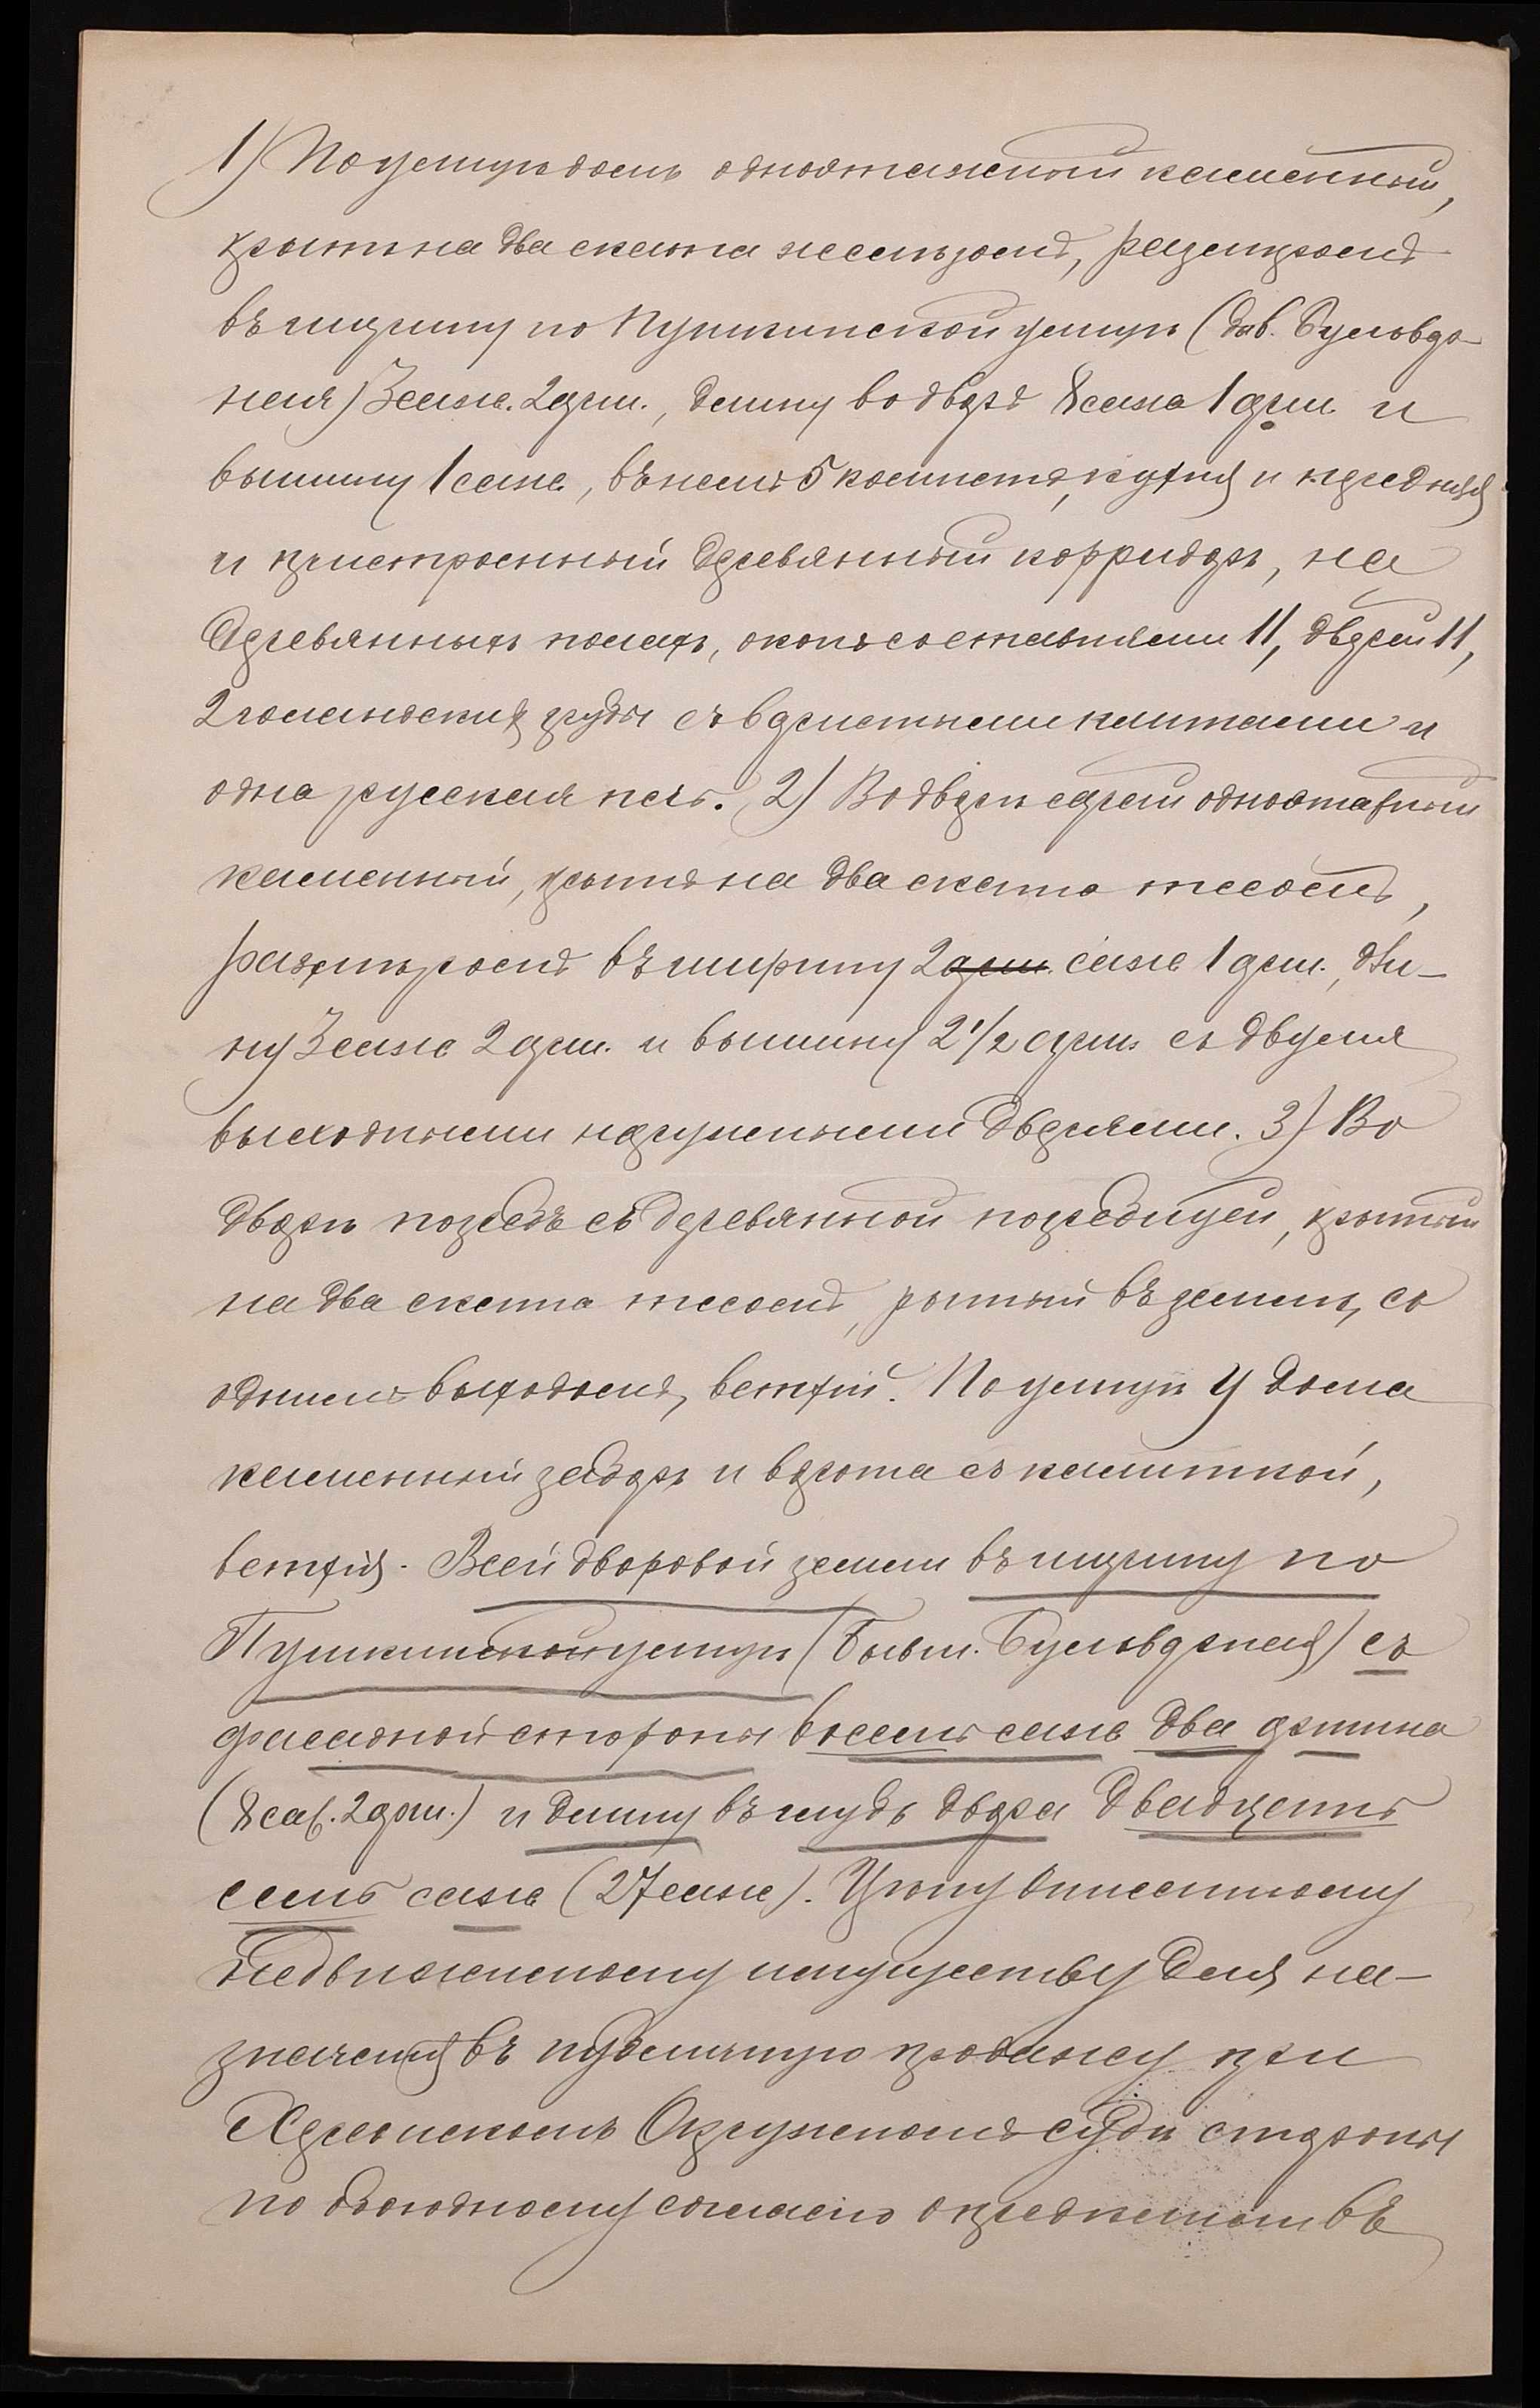 1) По улицѣ домъ одноэтажный каменный,
крытъ на два ската желѣзомъ, размѣромъ
въ ширину по Пушкинской улицѣ (быв. Бульвар-
ная) 3 саж. 2 арш., длину во дворъ 8 саж 1 арш. и
вышину 1 саж., въ немъ 5 комнатъ, кухня и передняя
и пристроенный деревянный корридоръ, на
деревянныхъ полахъ, оконъ со ставнями 11, дверей 11,
2 голандския грубы съ варистыми плитами и
одна русская печь. 2) Во дворѣ сарай одноэтажный
каменный, крытъ на два ската тесомъ,
размѣромъ въ ширину 2 арш. саж 1 арш., дли-
ну 3 саж 2 арш. и вышину 2 1/2 арш. съ двумя
выходными наружными дверями. 3) Во
дворѣ погребъ съ деревянной погребицей, крытый
на два ската тесомъ, рытый въ землѣ, съ
однимъ выходомъ, ветхій. По улицѣ у дома
каменный заборъ и ворота съ калиткой,
ветхія. Всей дворовой земли въ ширину по
Пушкинской улицѣ (бывш. Бульварная) съ
фасадной стороны восемь саж два аршина
(8 саж. 2 арш.) и длину въ глубь двора двадцать
семь саж (27 саж). Цѣну описанному
недвижимому имуществу для на-
значенія въ публичную продажу при
Херсонскомъ Окружномъ Судѣ стороны
по обоюдному согласію опредѣлили въ